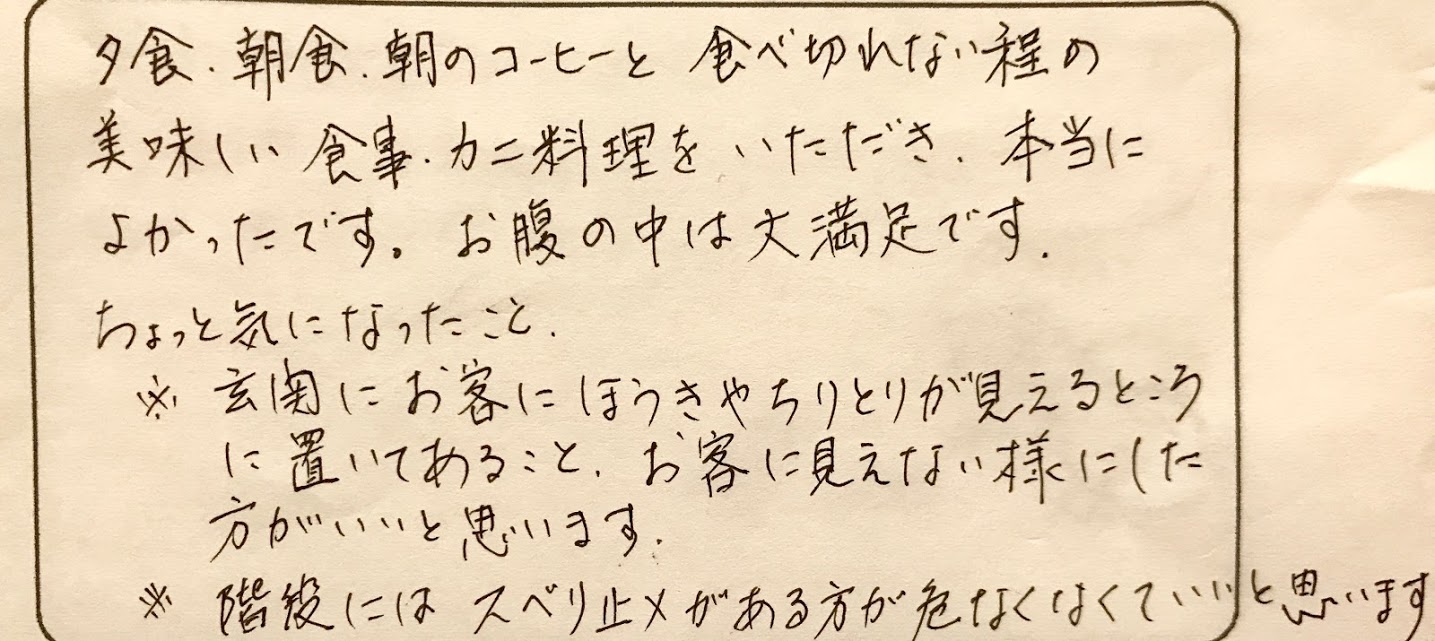 夕食.朝食.朝のコーヒーと 食べ切れない程の
美味しい 食事.カニ料理を いただき、本当に
よかったです。お腹の中は大満足です.
ちょっと気になったこと.
※ 玄関に お客に ほうきやちりとりが見えるところ
に置いてあること. お客に見えない様にした
方がいいと思います.
※ 階段には スベリ止メがある方が危なくなくていいと思います